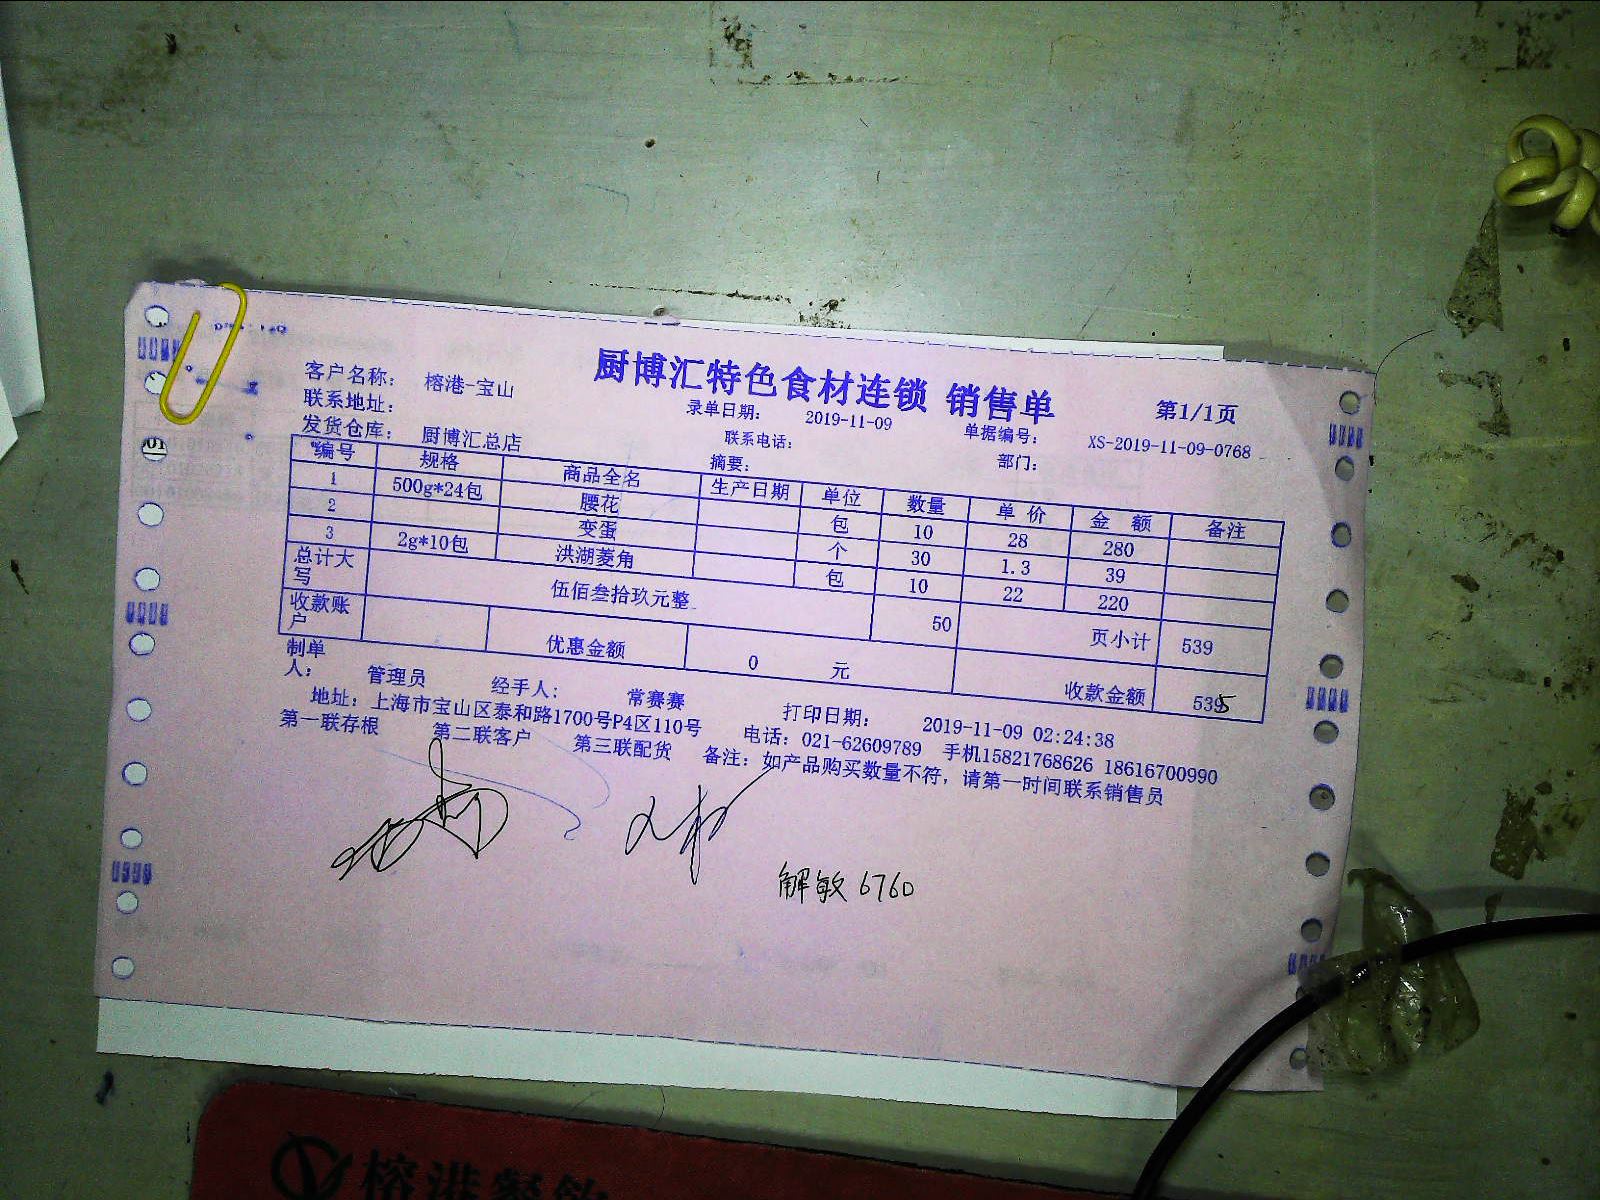 厨博汇特色食材连锁 销售单
第1/1页
客户名称： 榕港-宝山
录单日期： 2019-11-09 单据编号： XS-2019-11-09-0768
联系地址： 联系电话： 部门：
发货仓库： 厨博汇总店 摘要：
编号 规格 商品全名 生产日期 单位 数量 单价 金额 备注
1 500g*24包 腰花 包 10 28 280
2 变蛋 个 30 1.3 39
3 2g*10包 洪湖菱角 包 10 22 220
总计大写 伍佰叁拾玖元整 50 页小计 539
收款账户 优惠金额 0 元 收款金额 535
制单人： 管理员 经手人： 常赛赛 打印日期： 2019-11-09 02:24:38
地址：上海市宝山区泰和路1700号P4区110号 电话：021-62609789 手机15821768626 18616700990
第一联存根 第二联客户 第三联配货 备注：如产品购买数量不符，请第一时间联系销售员
解敏 6760
榕港餐饮